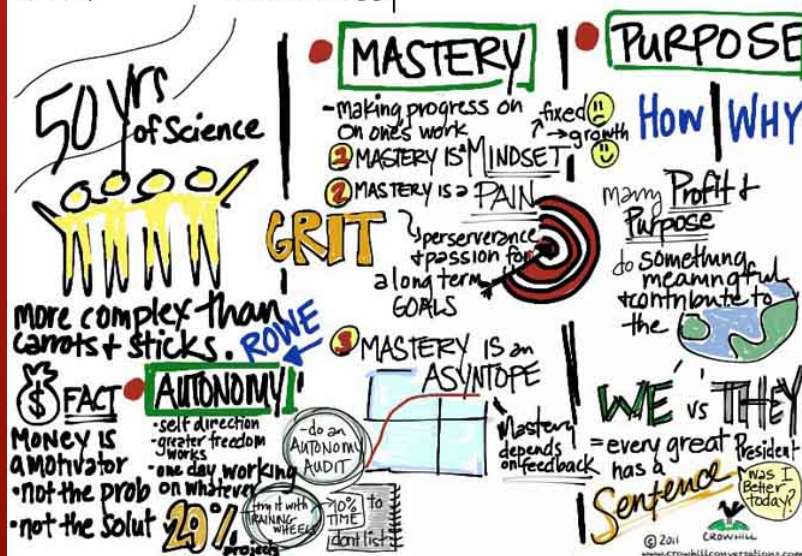 50 yrs
of Science
more complex than
carrots + sticks.
ROWE
$
FACT
MONEY IS
a motivator
• not the prob
• not the solut
AUTONOMY
- self direction
- greater freedom
works
- one day working
on whatever
20%
projects
- do an
AUTONOMY
AUDIT
try it with
TRAINING
WHEELS
→10%
TIME
to
dont list
MASTERY
- making progress on
on one's work
fixed
→ growth
1 MASTERY IS a MINDSET
2 MASTERY is a PAIN
GRIT
perserverance
+ passion for
a long term
GOALS
3 MASTERY IS an
ASYNTOPE
Mastery
depends
on feedback
PURPOSE
HOW | WHY
marry Profit +
Purpose
do something
meaningful
+ contribute to
the
WE vs THEY
= every great President
has a
Sentence
was I
Better
today?
© 2011
CROWHILL
www.crowhillconversations.com